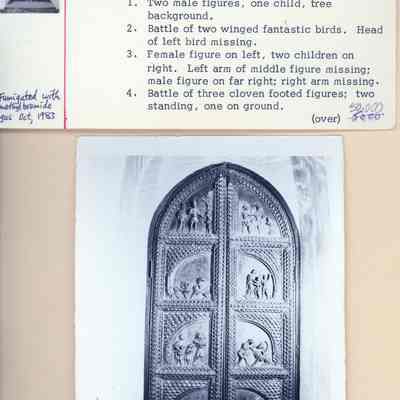 1. Two male figures, one child, tree
background.
2. Battle of two winged fantastic birds. Head
of left bird missing.
3. Female figure on left, two children on
right. Left arm of middle figure missing;
male figure on far right; right arm missing.
4. Battle of three cloven footed figures; two
standing, one on ground.
(over)
50,000
Fumigated with
methyl bromide
gas Oct, 1983